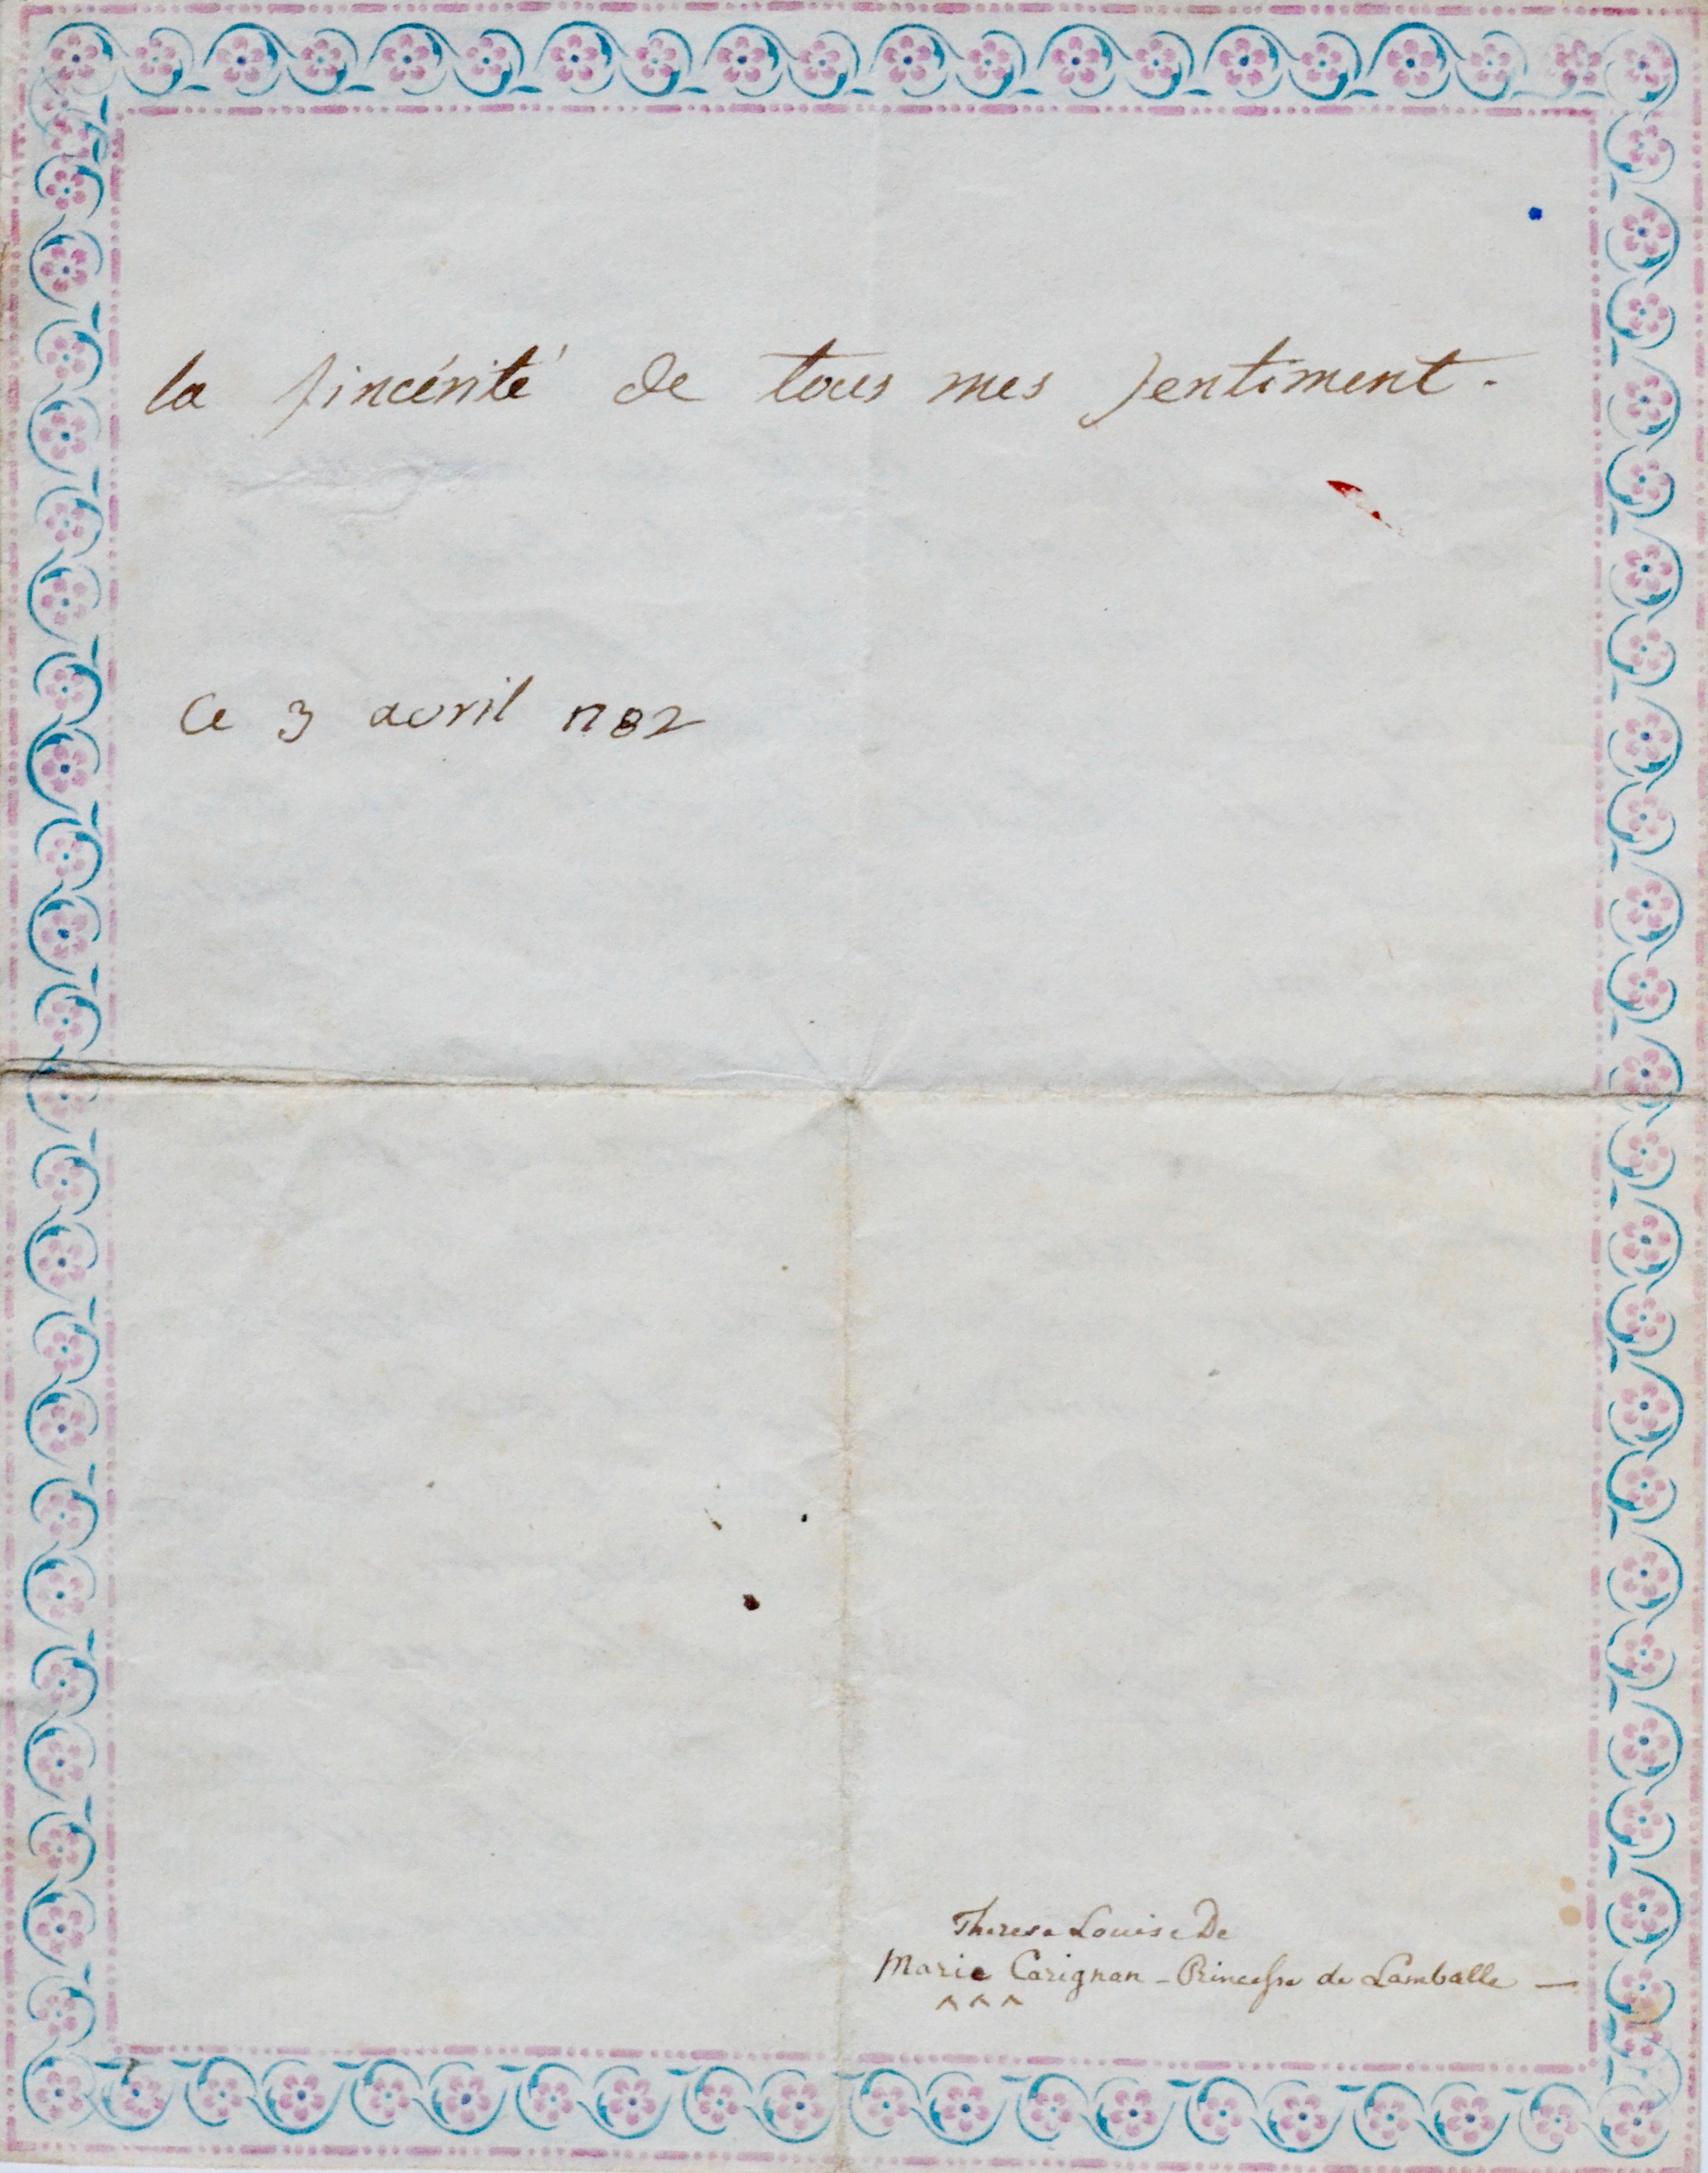 la sincérité de tous mes sentiment.
Ce 3 avril 1782
Therese Louise De
Marie Carignan - Princesse de Lamballe —
^ ^ ^